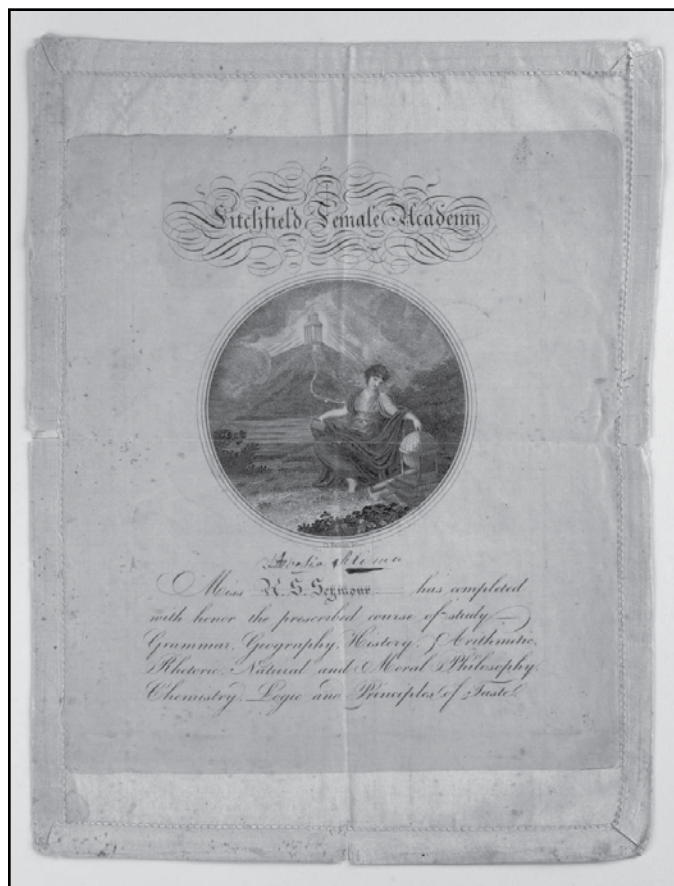 Litchfield Female Academy
Miss N. S. Seymour has completed
with honor the prescribed course of study
Grammar, Geography, History, Arithmetic,
Rhetoric, Natural and Moral Philosophy,
Chemistry, Logic and Principles of Taste.